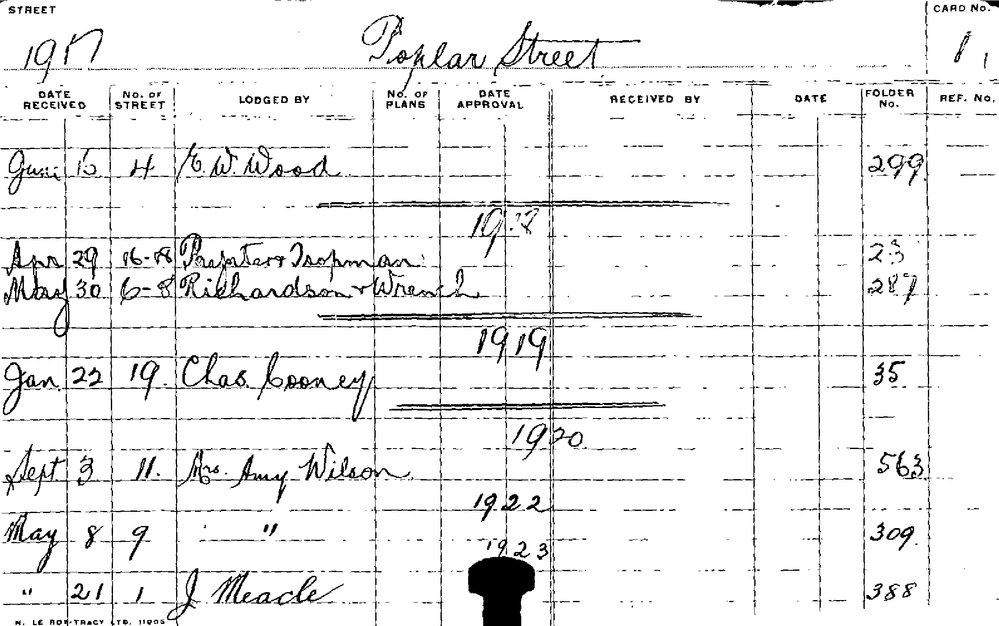 STREET CARD No.
1917 Poplar Street 1.
DATE RECEIVED No. OF STREET LODGED BY No. OF PLANS DATE APPROVAL RECEIVED BY DATE FOLDER No. REF. No.
4 E. W. Wood 299
1918
Apr 29 16-18 23
May 30 6-8 Richardson & Wrench 287
1919
Jan. 22 19. Chas. Cooney 35
1920
Sept. 3 11. Mrs. Amy Wilson 563
1922
May 8 9 " 309.
1923
" 21 1 J Meacle 388